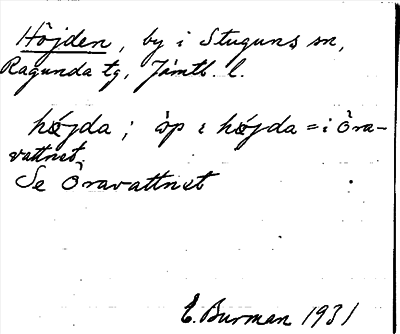 Höjden, by i Stuguns sn,
Ragunda tg, Jämtl. l.
højda; òp i højda = i Öra-
vattnet.
Se Öravattnet
E. Burman 1931